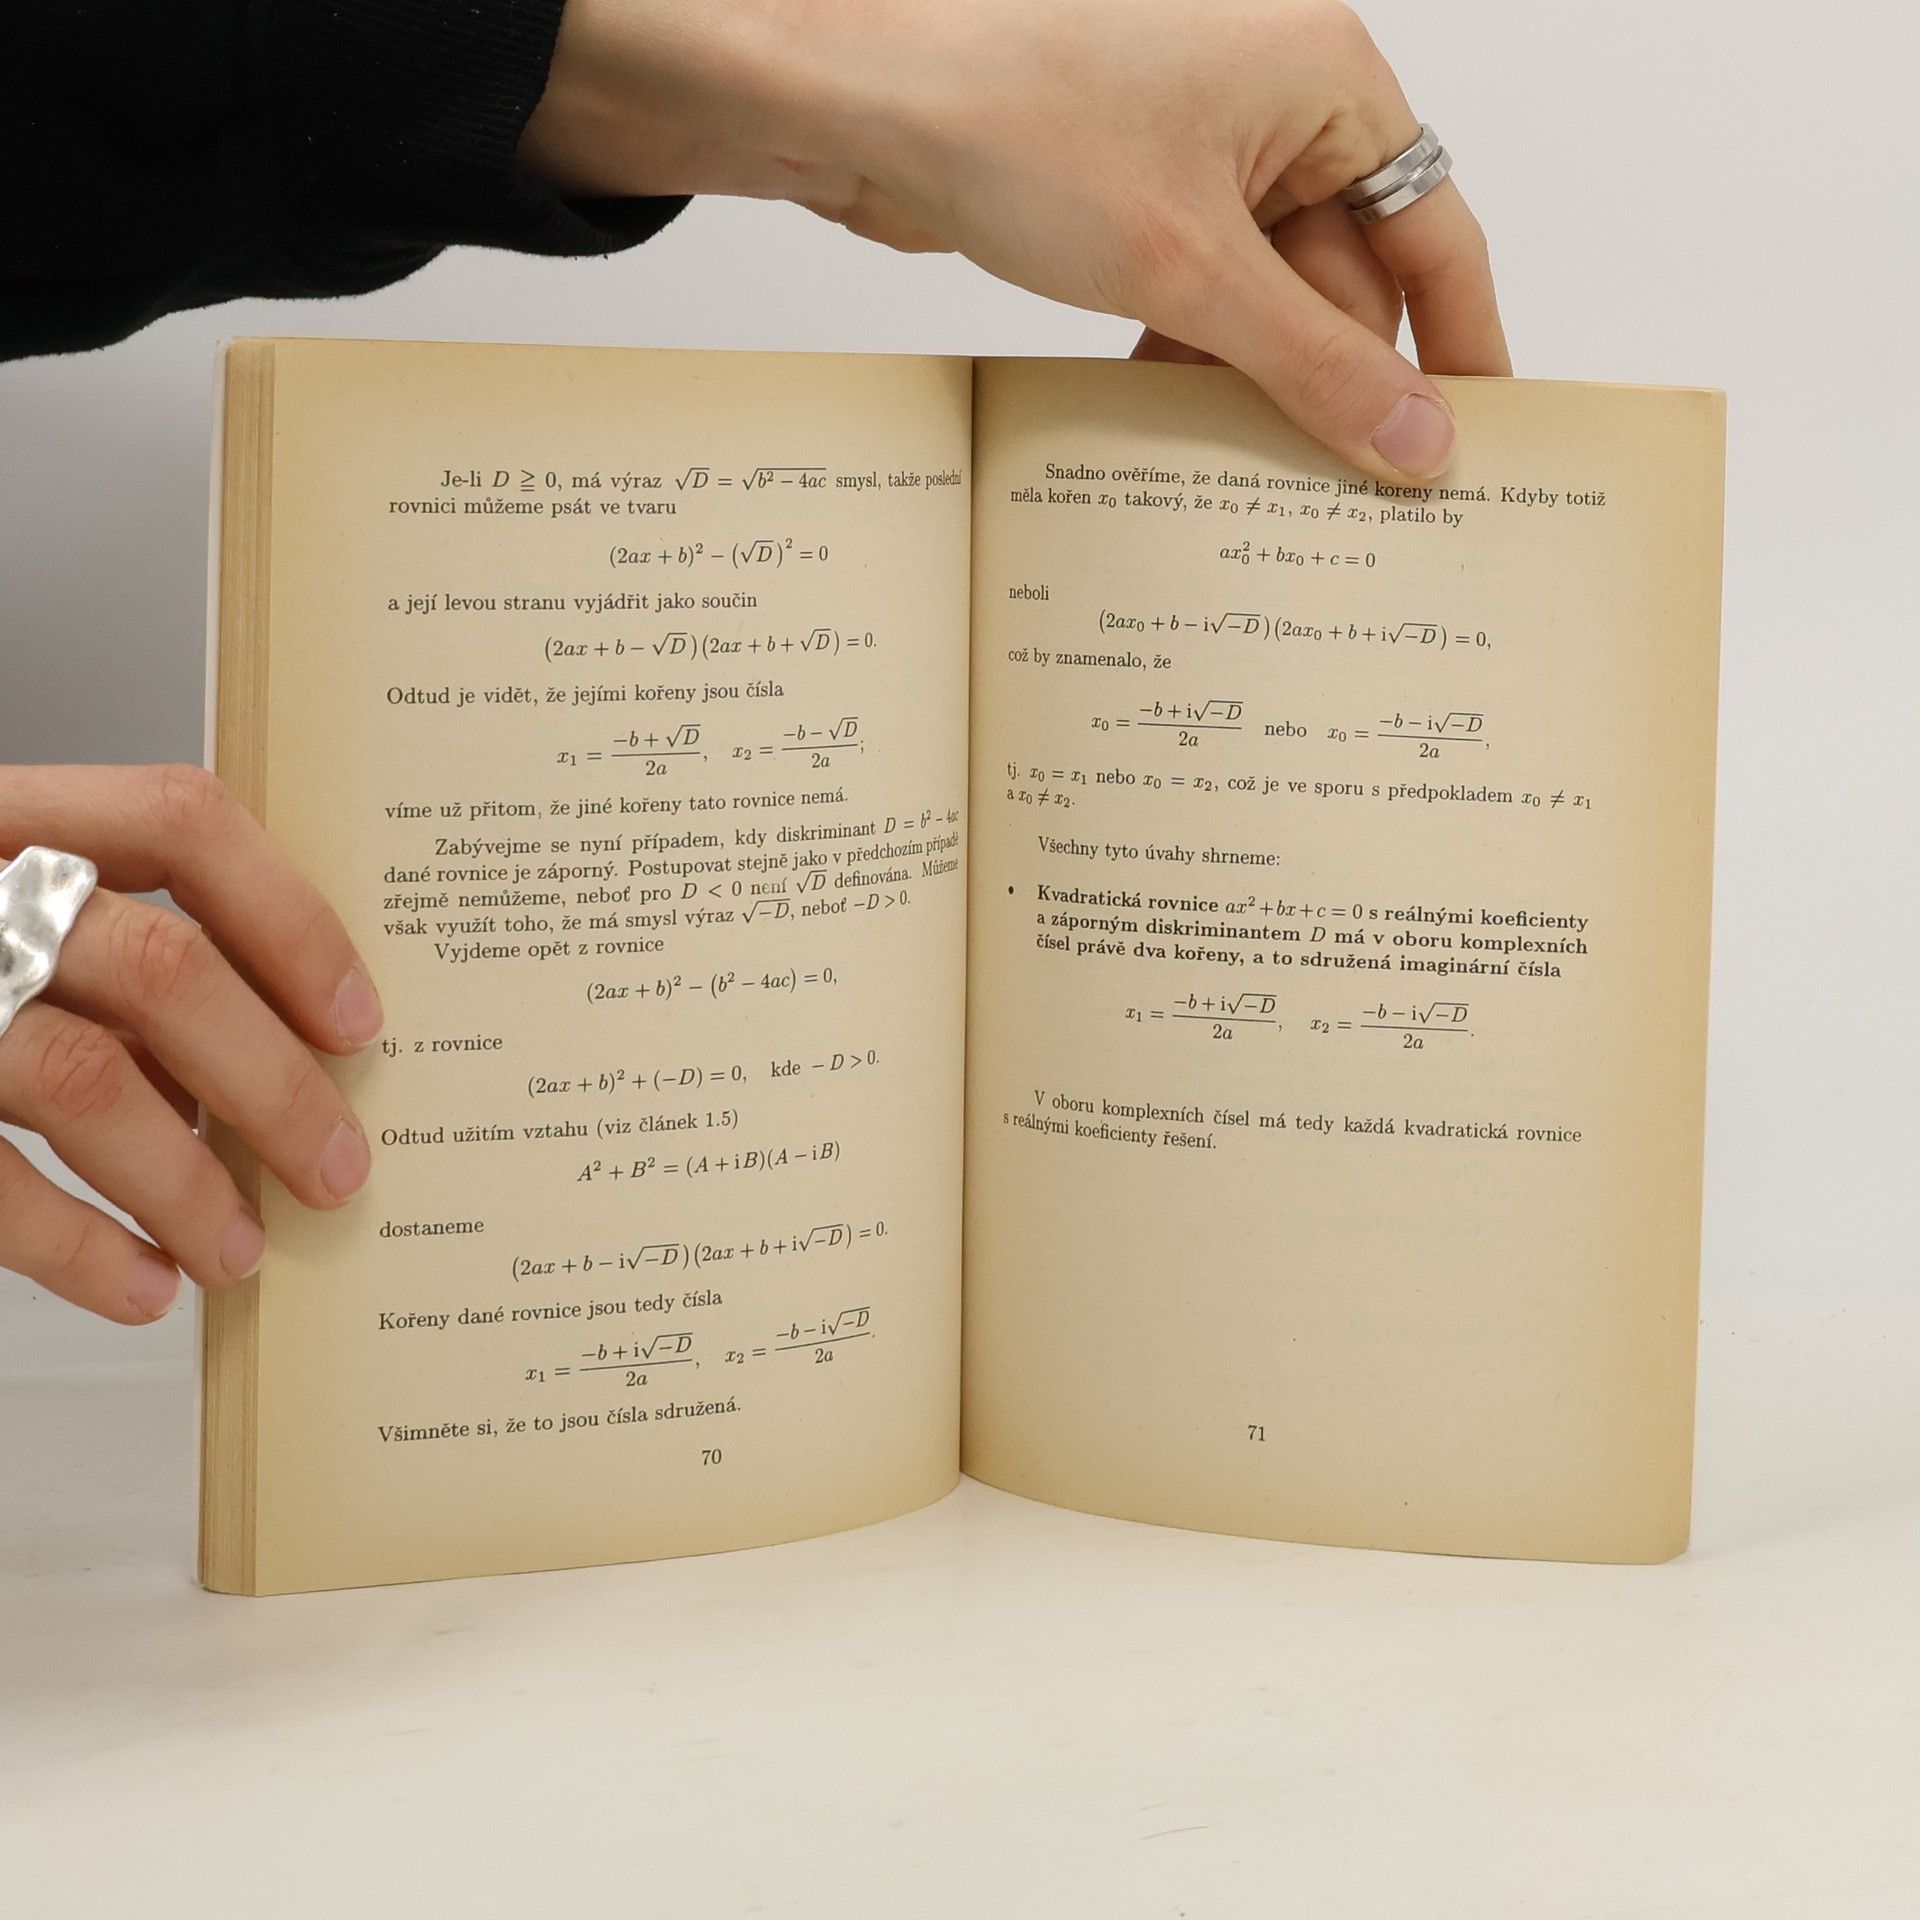 Je-li D ≧ 0, má výraz √D = √(b² − 4ac) smysl, takže poslední
rovnici můžeme psát ve tvaru
(2ax + b)² − (√D)² = 0
a její levou stranu vyjádřit jako součin
(2ax + b − √D)(2ax + b + √D) = 0.
Odtud je vidět, že jejími kořeny jsou čísla
x₁ = (−b + √D)/2a, x₂ = (−b − √D)/2a;
víme už přitom, že jiné kořeny tato rovnice nemá.
Zabývejme se nyní případem, kdy diskriminant D = b² − 4ac
dané rovnice je záporný. Postupovat stejně jako v předchozím případě
zřejmě nemůžeme, neboť pro D < 0 není √D definována. Můžeme
však využít toho, že má smysl výraz √−D, neboť −D > 0.
Vyjdeme opět z rovnice
(2ax + b)² − (b² − 4ac) = 0,
tj. z rovnice
(2ax + b)² + (−D) = 0, kde − D > 0.
Odtud užitím vztahu (viz článek 1.5)
A² + B² = (A + iB)(A − iB)
dostaneme
(2ax + b − i√−D)(2ax + b + i√−D) = 0.
Kořeny dané rovnice jsou tedy čísla
x₁ = (−b + i√−D)/2a, x₂ = (−b − i√−D)/2a.
Všimněte si, že to jsou čísla sdružená.
70
Snadno ověříme, že daná rovnice jiné kořeny nemá. Kdyby totiž
měla kořen x₀ takový, že x₀ ≠ x₁, x₀ ≠ x₂, platilo by
ax₀² + bx₀ + c = 0
neboli
(2ax₀ + b − i√−D)(2ax₀ + b + i√−D) = 0,
což by znamenalo, že
x₀ = (−b + i√−D)/2a nebo x₀ = (−b − i√−D)/2a,
tj. x₀ = x₁ nebo x₀ = x₂, což je ve sporu s předpokladem x₀ ≠ x₁
a x₀ ≠ x₂.
Všechny tyto úvahy shrneme:
• Kvadratická rovnice ax² + bx + c = 0 s reálnými koeficienty
a záporným diskriminantem D má v oboru komplexních
čísel právě dva kořeny, a to sdružená imaginární čísla
x₁ = (−b + i√−D)/2a, x₂ = (−b − i√−D)/2a.
V oboru komplexních čísel má tedy každá kvadratická rovnice
s reálnými koeficienty řešení.
71